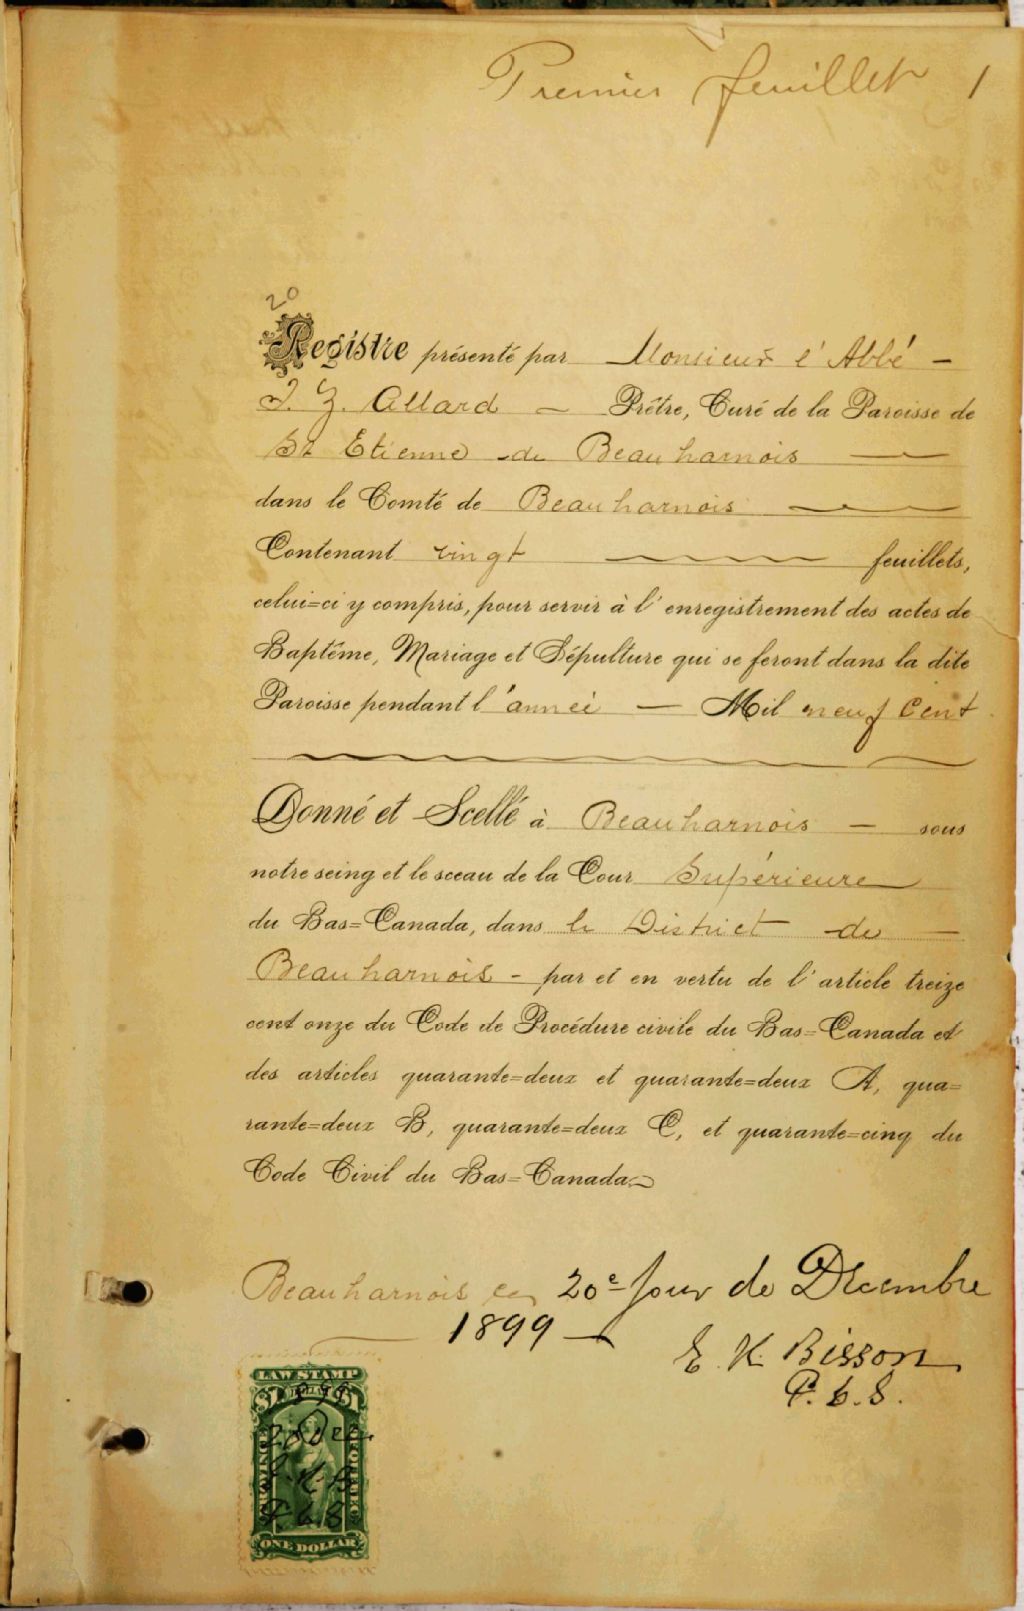 Premier feuillet 1
20
Registre présenté par Monsieur l'Abbé —
J. Z. Allard — Prêtre, Curé de la Paroisse de
St Etienne de Beauharnois
dans le Comté de Beauharnois
Contenant vingt feuillets,
celui=ci y compris, pour servir à l'enregistrement des actes de
Baptême, Mariage et Sépulture qui se feront dans la dite
Paroisse pendant l'année — Mil neuf Cent
Donné et Scellé à Beauharnois — sous
notre seing et le sceau de la Cour Supérieure
du Bas=Canada, dans le District de —
Beauharnois - par et en vertu de l'article treize
cent onze du Code de Procédure civile du Bas=Canada et
des articles quarante=deux et quarante=deux A, qua=
rante=deux B, quarante=deux C, et quarante=cinq du
Code Civil du Bas=Canada.
Beauharnois ce 20e Jour de Décembre
1899 —
E. K. Bisson
P. C. S.
LAW STAMP
$1 $1
1899
20 Dec.
E. K. B.
P. C. S.
PROVINCE OF QUEBEC
ONE DOLLAR